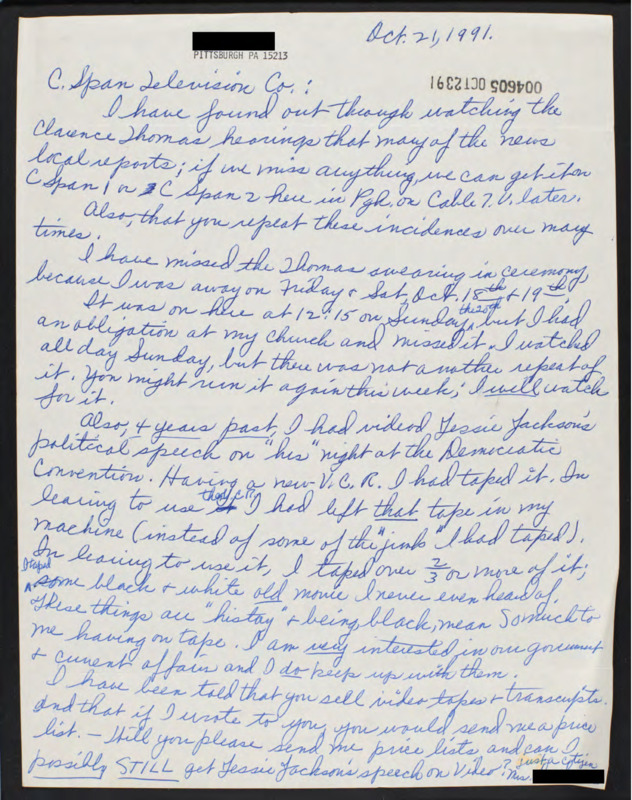 Oct. 21, 1991.
PITTSBURGH PA 15213
004605 OCT2391
C. Span Television Co.:
I have found out through watching the
Clarence Thomas hearings that many of the news
local reports; if we miss anything, we can get it on
C Span 1 or C Span 2 here in Pgh. on Cable T.V. later.
Also, that you repeat these incidences over many
times.
I have missed the Thomas swearing in ceremony,
because I was away on Friday & Sat, Oct. 18th & 19th.
It was on here at 12:15 on Sunday, the 20th but I had
an obligation at my church and missed it. I watched
all day Sunday, but there was not another repeat of
it. You might run it again this week; I will watch
for it.
Also, 4 years past, I had videod Jessie Jackson's
political speech on "his" night at the Democratic
Convention. Having a new V.C.R. I had taped it. In
learing to use the V.C.R. I had left that tape in my
machine (instead of some of the "junk" I had taped).
In learing to use it, I taped over 2/3 or more of it;
I taped some black & white old movie I never even heard of.
These things are "history" & being black, mean so much to
me having on tape. I am very interested in our government
& current affairs and I do keep up with them.
I have been told that you sell video tapes & transcripts.
and that if I wrote to you, you would send me a price
list. - Will you please send me price lists and can I
possibly STILL get Jessie Jackson's speech on Video?
Just a citizen
Mrs.